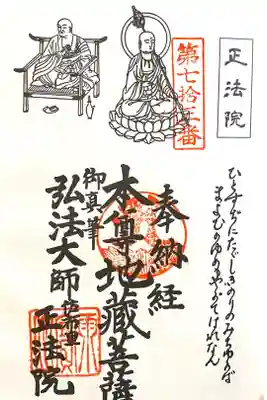 正法院
第七拾三番
ひとすぢにたゞしきのりのみちゆかば
まよひのゆめもやがてはれなん
奉納経
本尊地蔵菩薩
御真筆
弘法大師
佐布里
正法院